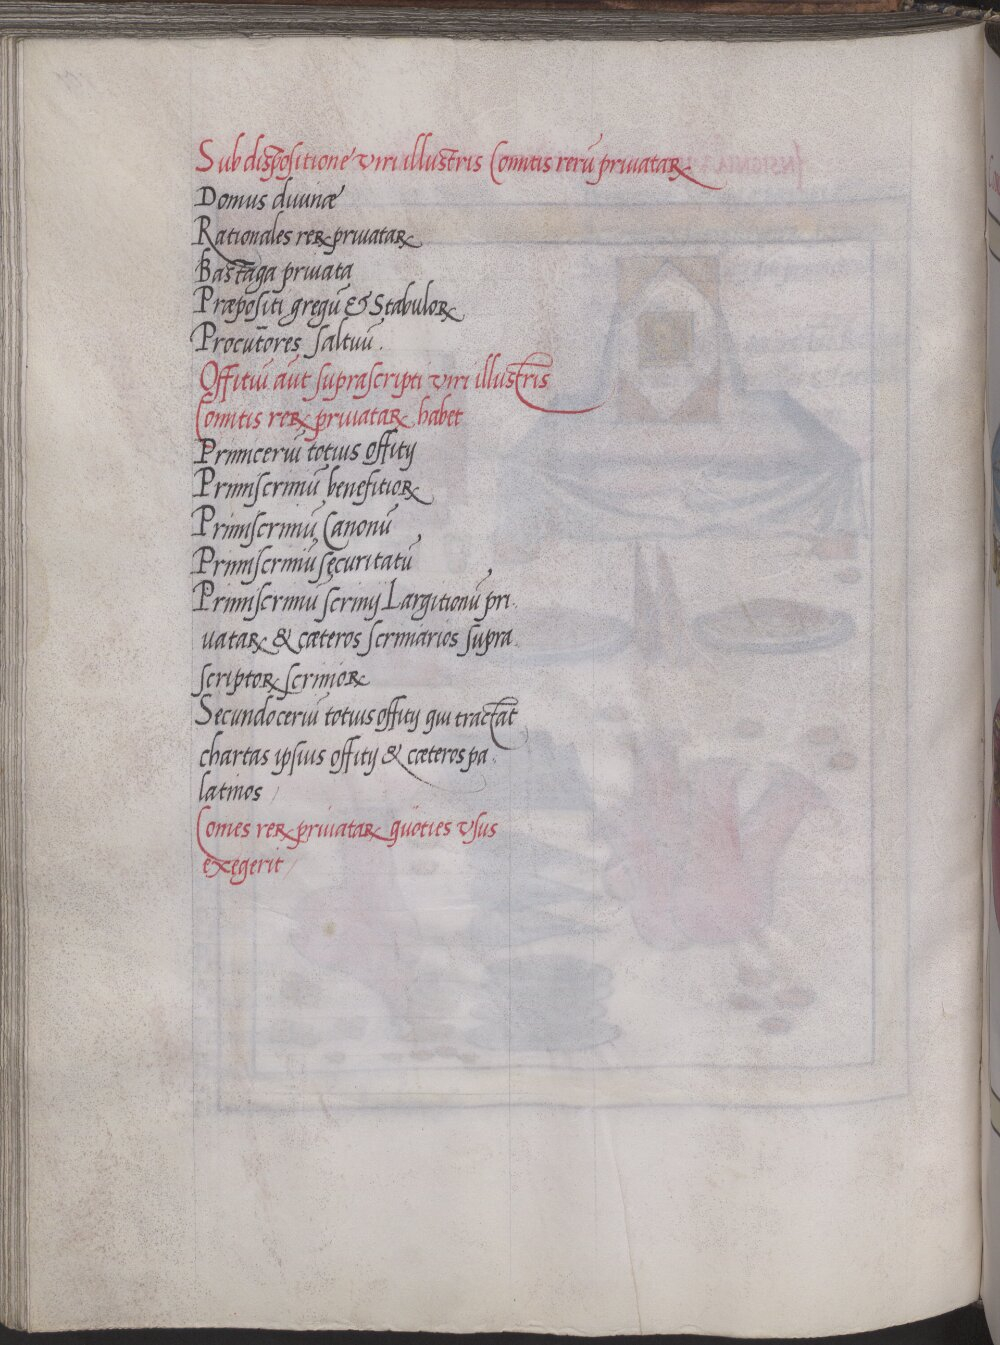 Sub dispositione viri illustris Comitis rerū priuatarꝝ
Domus diuinæ
Rationales rerꝝ priuatarꝝ
Bastaga priuata
Præpositi gregū & Stabulorꝝ
Procūtores saltuū.
Offitiū aūt suprascripti viri illustris
Comitis rerꝝ priuatarꝝ habet
Primiceriū totius offitij
Primiscriniū benefitiorꝝ
Primiscriniū Canonū
Primiscriniū sęcuritatū
Primiscriniū scrinij Largitionū pri.
uatarꝝ & cæteros scriniarios supra.
scriptorꝝ scriniorꝝ
Secundoceriū totius offitij qui tractat
chartas ipsius offitij & cæteros pa.
latinos /
Comes rerꝝ priuatarꝝ qūoties vsus
exegerit /